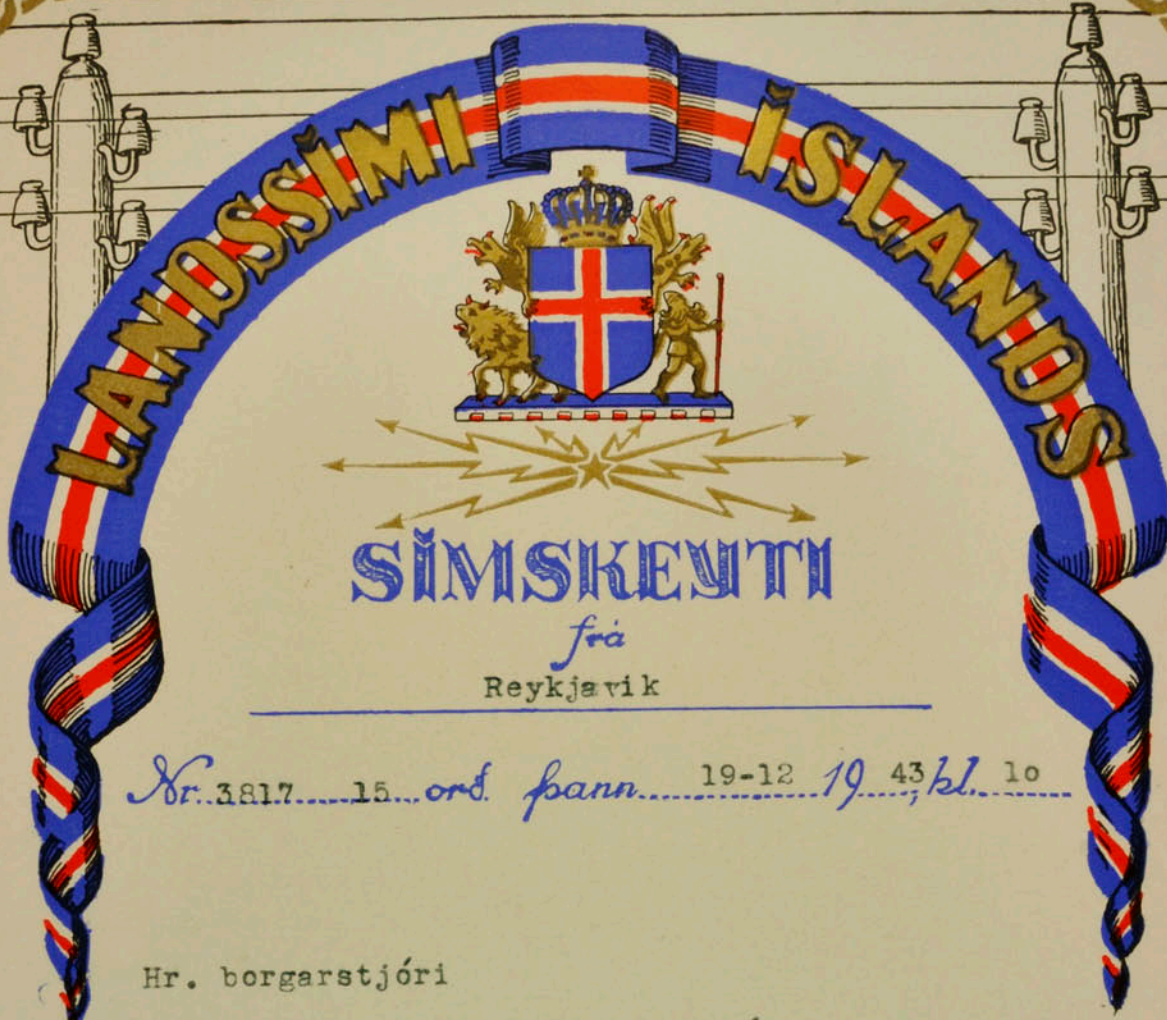 LANDSSÍMI ÍSLANDS
SÍMSKEYTI
frá
Reykjavik
Nr. 3817 15 orð. þann 19-12 19 43, kl. 10
Hr. borgarstjóri